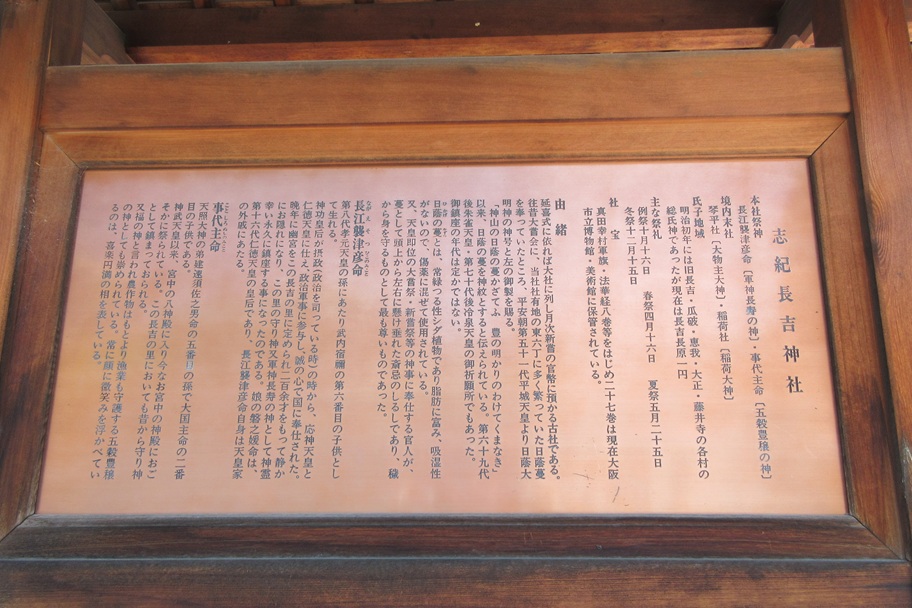 志紀長吉神社
本社祭神
長江襲津彦命〔軍神長寿の神〕・事代主命〔五穀豊穣の神〕
境内末社
琴平社〔大物主大神〕・稲荷社〔稲荷大神〕
氏子地域
明治初年には旧長吉・瓜破・恵我・大正・藤井寺の各村の
総氏神であったが現在は長吉長原一円
主な祭礼
例祭十月十六日　春祭四月十六日　夏祭五月二十五日
冬祭十二月十五日
社　宝
真田幸村軍旗・法華経八巻等をはじめ二十七巻は現在大阪
市立博物館・美術館に保管されている。
由　緒
延喜式に依れば大社に列し月次新嘗の官幣に預かる古社である。
往昔大嘗会に、当社社有地の東六丁に多く繁っていた日蔭蔓
を奉っていたところ、平安朝第五十一代平城天皇より日蔭大
明神の神号と左の御製を賜る。
「神山の日蔭の蔓かざてふ　豊の明かりのわけてくまなき」
以来、日蔭の蔓を神紋とすると伝えられている。第六十九代
後朱雀天皇・第七十代後冷泉天皇の御祈願所でもあった。
御鎮座の年代は定かではない。
日蔭の蔓とは、常緑つる性シダ植物であり脂肪に富み、吸湿性
がないので、傷薬に混ぜて使用されている。
又、天皇即位の大嘗祭・新嘗祭等の神事に奉仕する官人が、
蔓として頭上から左右に懸け垂れた斎忌のしるしであり、穢
から身を守るものとして最も尊いものであった。
長江襲津彦命
第八代孝元天皇の孫にあたり武内宿禰の第六番目の子供とし
て生れる。
神功皇后が摂政(政治を司っている時)の時から、応神天皇と
仁徳天皇に仕え、政治軍事に参与し、誠の心で国に奉仕された。
晩年に幽宮をこの長吉の里に定められ二百余才をもって静か
にお身隠になり、この里の守り神又軍神長寿の神として神霊
幸い永久に鎮座する事になったのである。娘の磐之媛命は、
第十六代仁徳天皇の皇后であり、長江襲津彦命自身は天皇家
の外戚にあたる。
事代主命
天照大神の弟建速須佐之男命の五番目の孫で大国主命の二番
目の子供である。
神武天皇以来、宮中の八神殿に入り今なお宮中の神殿におご
そかに祭られている。この長吉の里においても昔から守り神
として鎮まっておられる。
又福の神と言われ農作物はもとより漁業も守護する五穀豊穣
の神としても崇められている。常に顔に微笑みを浮かべてい
るのは、喜楽円満の相を表している。